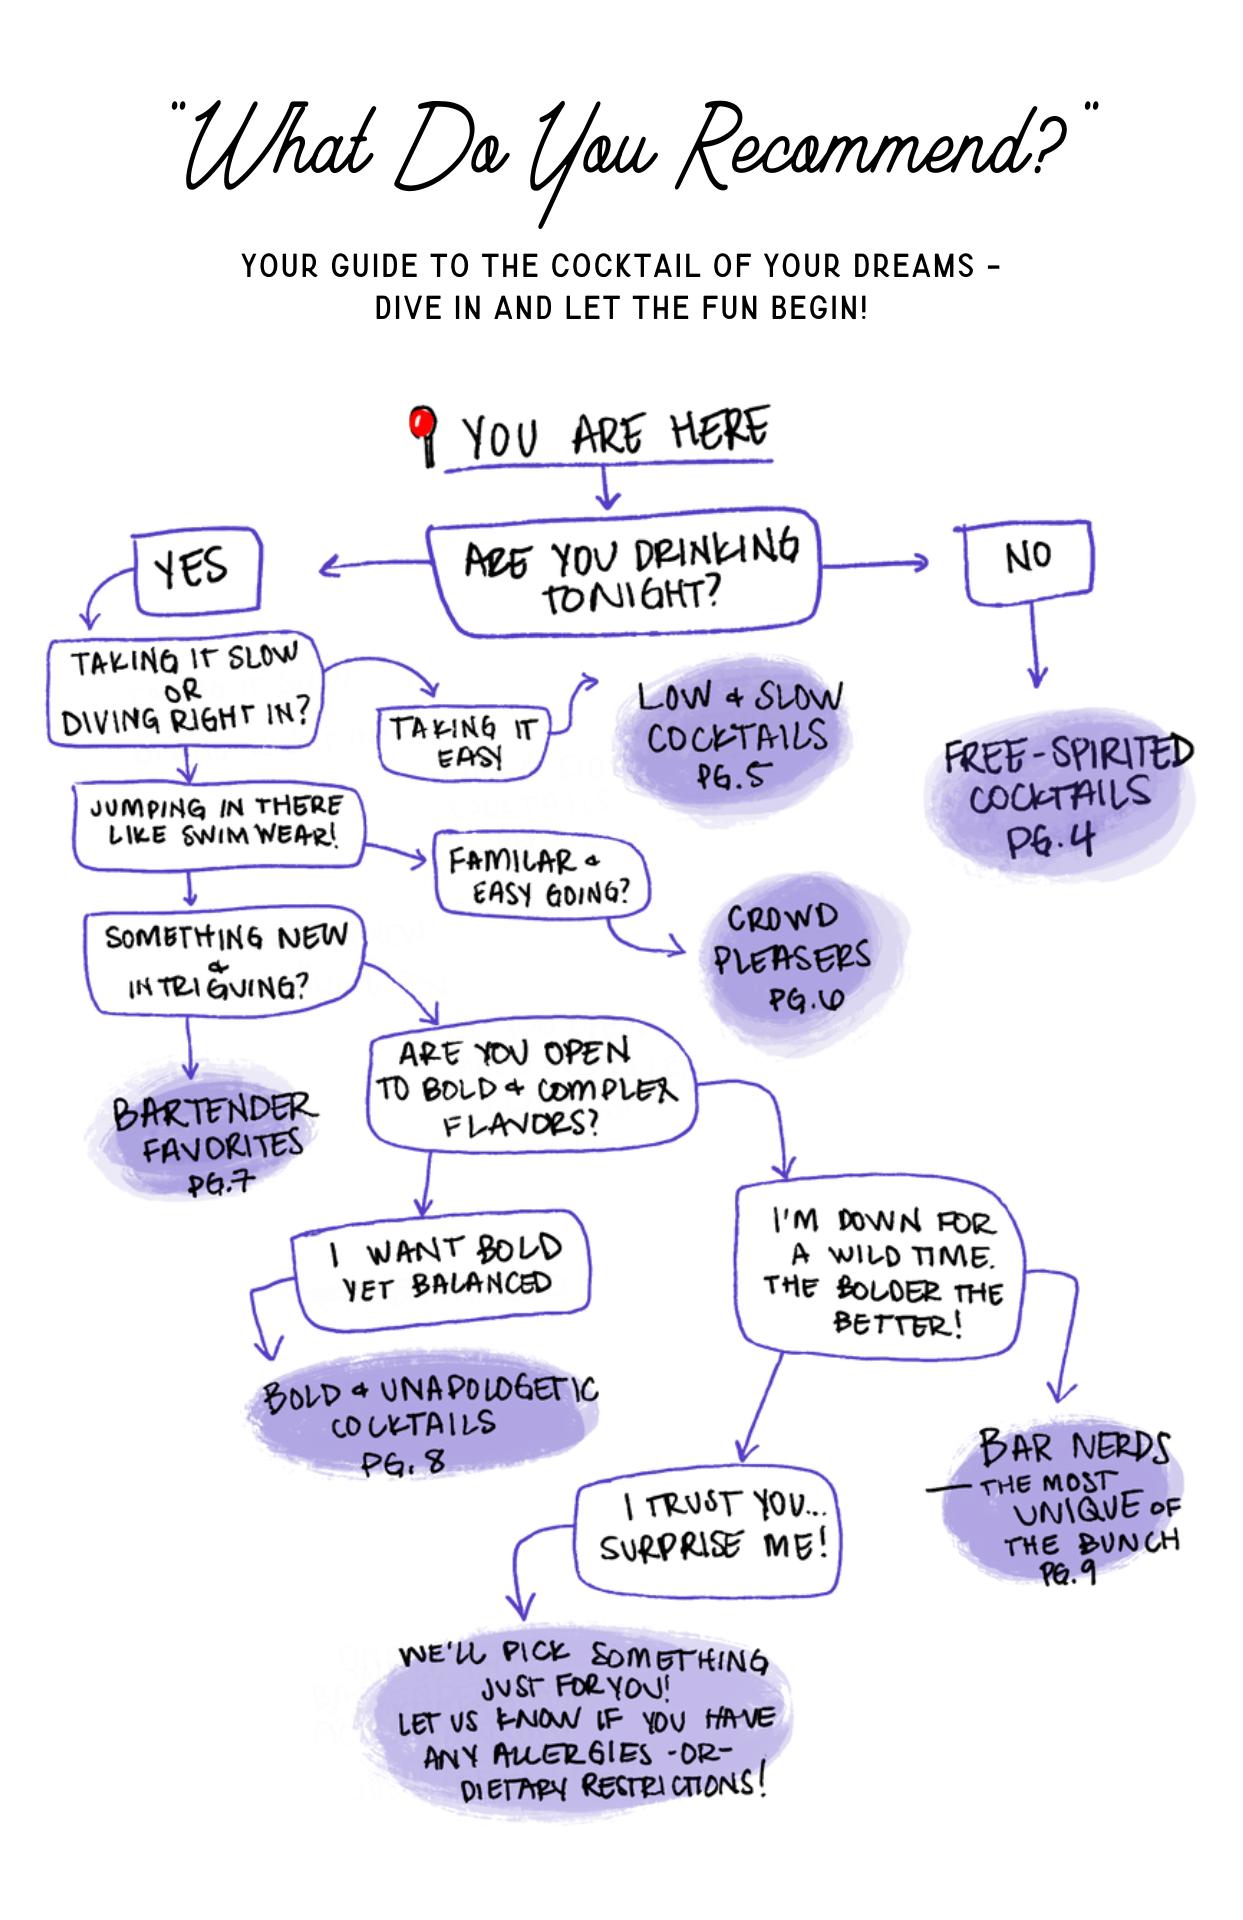 "What Do You Recommend?"
YOUR GUIDE TO THE COCKTAIL OF YOUR DREAMS -
DIVE IN AND LET THE FUN BEGIN!
YOU ARE HERE
ARE YOU DRINKING
TONIGHT?
YES
NO
TAKING IT SLOW
OR
DIVING RIGHT IN?
TAKING IT
EASY
LOW & SLOW
COCKTAILS
PG.5
FREE-SPIRITED
COCKTAILS
PG.4
JUMPING IN THERE
LIKE SWIMWEAR!
FAMILAR &
EASY GOING?
CROWD
PLEASERS
PG.6
SOMETHING NEW
&
INTRIGUING?
BARTENDER
FAVORITES
PG.7
ARE YOU OPEN
TO BOLD & COMPLEX
FLAVORS?
I WANT BOLD
YET BALANCED
BOLD & UNAPOLOGETIC
COCKTAILS
PG. 8
I'M DOWN FOR
A WILD TIME.
THE BOLDER THE
BETTER!
BAR NERDS
— THE MOST
UNIQUE OF
THE BUNCH
PG.9
I TRUST YOU...
SURPRISE ME!
WE'LL PICK SOMETHING
JUST FOR YOU!
LET US KNOW IF YOU HAVE
ANY ALLERGIES -OR-
DIETARY RESTRICTIONS!